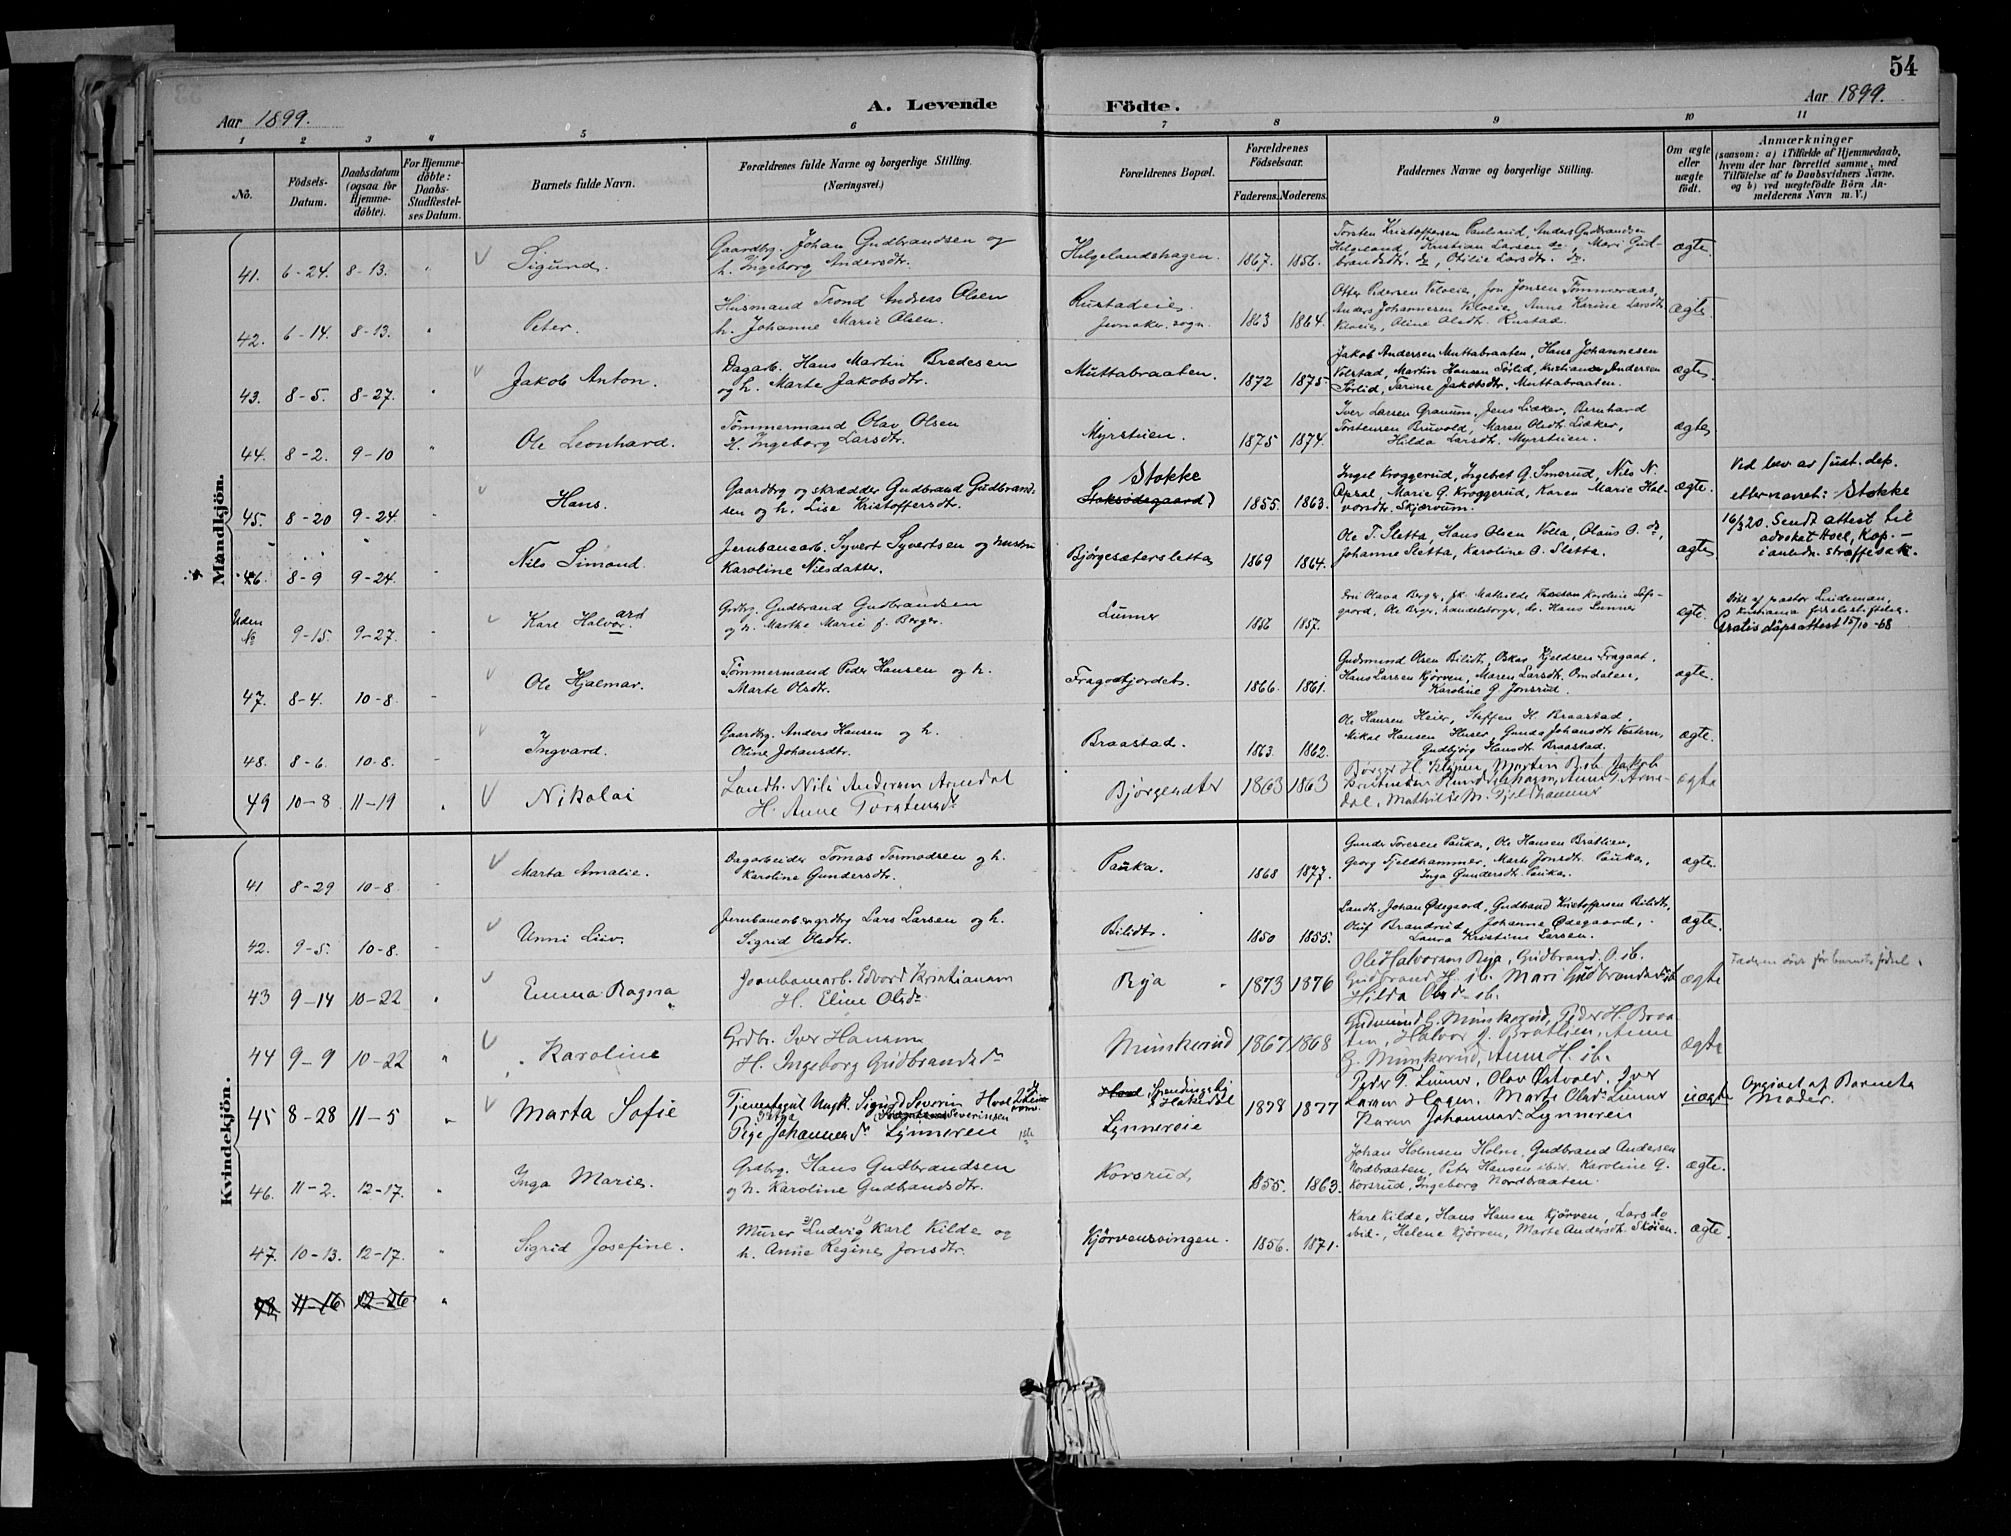 54
Aar 1899.
A. Levende Födte.
Aar 1899.
1 2 3 4 5 6 7 8 9 10 11
No.
Födsels-Datum.
Daabsdatum (ogsaa for Hjemme-døbte).
For Hjemme-døbte: Daabs-Stadfæstel-ses Datum.
Barnets fulde Navn.
Forældrenes fulde Navne og borgerlige Stilling. (Næringsvei.)
Forældrenes Bopæl.
Forældrenes Födselsaar.
Faderens. Moderens.
Faddernes Navne og borgerlige Stilling.
Om ægte eller uægte födt.
Anmærkninger
(saasom: a) i Tilfælde af Hjemmedaab, hvem der har forrettet samme, med Tilföielse af to Daabsvidners Navne. og b) ved uægtefödte Börn An-melderens Navn m. V.)
Mandkjön.
41. 6-24. 8-13. " Sigund. Gaardbr. Johan Gudbrandsen og
h. Ingeborg Andersdtr. Helgelandshagen. 1867. 1856. Torsten Kristoffersen Paulsrud, Anders Gudbrandsen
Helgeland, Kristian Larsen do., Mari Gul-
brandsdtr. do, Otilie Larsdtr. do. ægte.
42. 6-14. 8-13. " Peter. Husmand Trond Anders Olsen
h. Johanne Marie Olsen. Rustadeie, Jevnaker sogn. 1863 1864. Otter Pedersen Veloeie, Jon Jonsen Tømmeraas,
Anders Johannesen Veloeie, Anne Karine Larsdtr.
Veloeie, Oline Olsdtr. Rustad. ægte.
43. 8-5. 8-27. " Jakob Anton. Dagarb. Hans Martin Bredesen
og h. Marte Jakobsdtr. Muttabraaten. 1872 1875. Jakob Andersen Muttabraaten, Hans Johannesen
Volstad, Martin Hansen Sørlid, Kristian Andersen
Sørlid, Torine Jakobsdtr. Muttabraaten. ægte.
44. 8-2. 9-10 " Ole Leonhard. Tømmermand Olav Olsen
H. Ingeborg Larsdtr. Myrstuen. 1875 1874. Iver Larsen Granum, Jens Liaker, Bernhard
Torstensen Bruvold, Maren Olsdtr. Liaker,
Hilda Larsdtr. Myrstuen. ægte.
45. 8-20 9-24. " Hans. Gaardbr. og skrædder Gudbrand Gudbrand-
sen og h. Lise Kristoffersdtr. Stokke 1855. 1863. Ingel Kroggerud, Ingebret G. Smerud, Nils N.
Opsal, Marie G. Kroggerud, Karen Marie Hal-
vorsdtr. Skjærvum. ægte. Ved bev. av Just. dep.
etternavnet: Stokke
46. 8-9 9-24. Nils Simond. Jernbanearb. Syvert Syvertsen og hustru
Karoline Nilsdatter. Bjørgesætersletta 1869 1864. Ole T. Sletta, Hans Olsen Volla, Olaus O. do,
Johanne Sletta, Karoline O. Sletta. ægte. 16/3 20. Sendt attest til
advokat Hoel, Kap. -
i anledn. straffesak.
Uden No 9-15. 9-27. " Karl Halvard Grdbr. Gudbrand Gudbrandsen
og h. Marthe Marie f. Berger. Lunner 1856 1857. ægte. Døbt af pastor Lindeman,
Kristiania fødselsstiftelse.
Gratis dåpsattest 15/10-68
47. 8-4. 10-8. " Ole Hjalmar. Tømmermand Peder Hansen og h.
Marte Olsdtr. Fragotfjordet. 1866. 1861. Gudmund Olsen Bilidt, Oskar Kjeldsen Fragaat,
Hans Larsen Kjørven, Maren Larsdtr. Omdalen,
Karoline G. Jonsrud. ægte.
48. 8-6. 10-8. " Ingvard. Gaardbr. Anders Hansen og h.
Oline Johansdtr. Braastad. 1863. 1862. Ole Hansen Heier, Steffen H. Braastad,
Mikal Hansen Huser, Gunda Johansdtr. Vestern,
Gudbjørg Hansdtr. Braastad. ægte.
49 10-8 11-19 " Nikolai Landh. Nils Andersen Arnedal
H. Anne Torstensdtr. Bjørgesæter 1863 1863 ægte
Kvindekjön.
41 8-29 10-8. " Marta Amalie. Dagarbeider Tomas Tormodsen og h.
Karoline Gundersdtr. Pauka. 1868 1877. Gunder Toresen Pauka, Ole Hansen Bratlien,
Georg Fjeldhammer, Marte Jonsdtr. Pauka,
Inga Gundersdtr. Pauka. ægte.
42. 9-5. 10-8. " Unni Liiv. Jernbanearb. & grdbr. Lars Larsen og h.
Sigrid Olsdtr. Bilidt. 1850 1855. Landh. Johan Ødegaard, Gudbrand Kristoffersen Bilidt,
Oluf Brandrud, Johanne Ødegaard,
Laura Kristine Larsen. ægte.
43 9-14 10-22 " Emma Ragna Jernbanearb. Edvard Kristiansen
H. Eline Olsdr. Rya 1873 1876 Ole Halvorsen Rya, Gudbrand O. ib.
Gudbrand H. ib. Mari Gudbrandsd. ib
Hilda Olsd. ib. ægte Faderen død før barnets fødsel.
44 9-9 10-22 " Karoline Grdbr. Iver Hansen
H. Ingeborg Gudbrandsdr. Munkerud 1867 1868 Gudmund G. Munkerud, Peder H. Braa-
ten, Halvor J. Bratlien, Anne
G. Munkerud, Anne H. ib. ægte
45 8-28 11-5 " Marta Sofie Tjenestegut Ungk. Sigurd Severin Hval
Severinsen
Pige Johannesdr. Lynnereie Hakedal
Lynnereie 1878 1877 Peder T. Lunner, Olav Østvold, Iver
Larsen Hagen, Marte Olsd. Lunner
Karen Johannesd. Lynnereie uægte Opgivet af Barnets
Moder.
46. 11-2. 12-17. " Inga Marie. Grdbr. Hans Gudbrandsen
og h. Karoline Gudbrandsdtr. Korsrud, 1855. 1863. Johan Holmsen Holm, Gudbrand Andersen
Nordbraaten, Peter Hansen ibid. Karoline G.
Korsrud, Ingeborg Nordbraaten. ægte.
47. 10-13. 12-17. " Sigrid Josefine. Murer Ludvig Karl Kilde og
h. Anne Regine Jonsdtr. Kjørvensvingen. 1856. 1871. Karl Kilde, Hans Hansen Kjørven, Lars do
ibid., Helene Kjørven, Marte Andersdtr. Skøien. ægte.
48 11-16 12-26 "